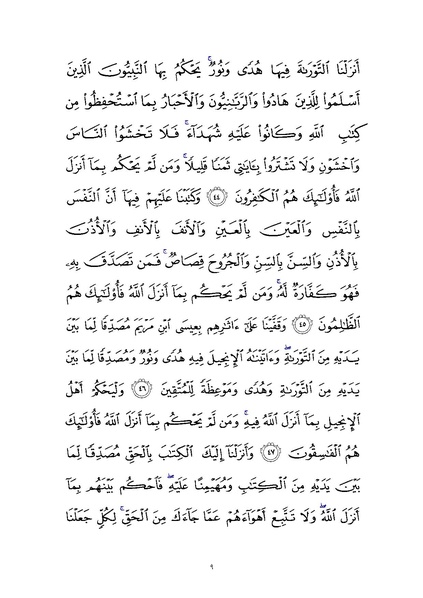 أَنزَلْنَا ٱلتَّوْرَىٰةَ فِيهَا هُدًى وَنُورٌ ۚ يَحْكُمُ بِهَا ٱلنَّبِيُّونَ ٱلَّذِينَ
أَسْلَمُوا۟ لِلَّذِينَ هَادُوا۟ وَٱلرَّبَّـٰنِيُّونَ وَٱلْأَحْبَارُ بِمَا ٱسْتُحْفِظُوا۟ مِن
كِتَـٰبِ ٱللَّهِ وَكَانُوا۟ عَلَيْهِ شُهَدَآءَ ۚ فَلَا تَخْشَوُا۟ ٱلنَّاسَ
وَٱخْشَوْنِ وَلَا تَشْتَرُوا۟ بِـَٔايَـٰتِى ثَمَنًا قَلِيلًا ۚ وَمَن لَّمْ يَحْكُم بِمَآ أَنزَلَ
ٱللَّهُ فَأُو۟لَـٰٓئِكَ هُمُ ٱلْكَـٰفِرُونَ ٤٤ وَكَتَبْنَا عَلَيْهِمْ فِيهَآ أَنَّ ٱلنَّفْسَ
بِٱلنَّفْسِ وَٱلْعَيْنَ بِٱلْعَيْنِ وَٱلْأَنفَ بِٱلْأَنفِ وَٱلْأُذُنَ
بِٱلْأُذُنِ وَٱلسِّنَّ بِٱلسِّنِّ وَٱلْجُرُوحَ قِصَاصٌ ۚ فَمَن تَصَدَّقَ بِهِۦ
فَهُوَ كَفَّارَةٌ لَّهُۥ ۚ وَمَن لَّمْ يَحْكُم بِمَآ أَنزَلَ ٱللَّهُ فَأُو۟لَـٰٓئِكَ هُمُ
ٱلظَّـٰلِمُونَ ٤٥ وَقَفَّيْنَا عَلَىٰٓ ءَاثَـٰرِهِم بِعِيسَى ٱبْنِ مَرْيَمَ مُصَدِّقًا لِّمَا بَيْنَ
يَدَيْهِ مِنَ ٱلتَّوْرَىٰةِ ۖ وَءَاتَيْنَـٰهُ ٱلْإِنجِيلَ فِيهِ هُدًى وَنُورٌ وَمُصَدِّقًا لِّمَا بَيْنَ
يَدَيْهِ مِنَ ٱلتَّوْرَىٰةِ وَهُدًى وَمَوْعِظَةً لِّلْمُتَّقِينَ ٤٦ وَلْيَحْكُمْ أَهْلُ
ٱلْإِنجِيلِ بِمَآ أَنزَلَ ٱللَّهُ فِيهِ ۚ وَمَن لَّمْ يَحْكُم بِمَآ أَنزَلَ ٱللَّهُ فَأُو۟لَـٰٓئِكَ
هُمُ ٱلْفَـٰسِقُونَ ٤٧ وَأَنزَلْنَآ إِلَيْكَ ٱلْكِتَـٰبَ بِٱلْحَقِّ مُصَدِّقًا لِّمَا
بَيْنَ يَدَيْهِ مِنَ ٱلْكِتَـٰبِ وَمُهَيْمِنًا عَلَيْهِ ۖ فَٱحْكُم بَيْنَهُم بِمَآ
أَنزَلَ ٱللَّهُ ۖ وَلَا تَتَّبِعْ أَهْوَآءَهُمْ عَمَّا جَآءَكَ مِنَ ٱلْحَقِّ ۚ لِكُلٍّ جَعَلْنَا
٩